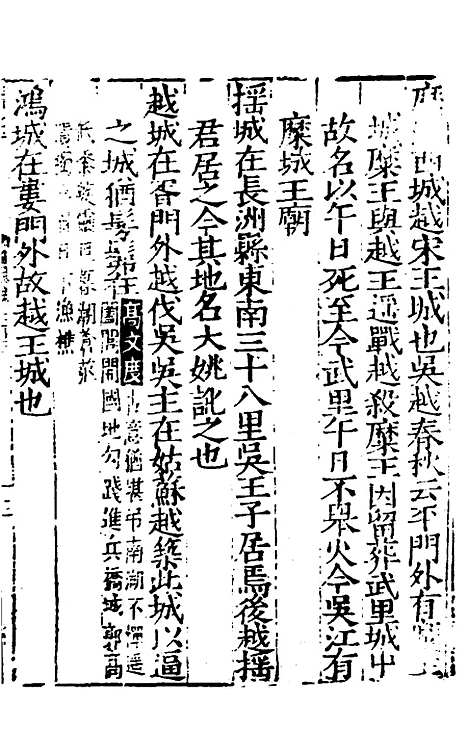 西城越宋王城也吳越春秋云平門外有
城糜王與越王遥戰越殺糜王因留葬武里城中
故名以午日死至今武里午日不舉火今吳江有
糜城王廟
搖城在長洲縣東南三十八里吳王子居焉後越揺
君居之今其地名大姚訛之也
越城在胥門外越伐吳吳主在姑蘇越築此城以逼
之城猶髣髴在 高文度 古意猶堪吊南湖不憚遥
國地勾踐進兵橋城
漁樵
鴻城在婁門外故越王城也